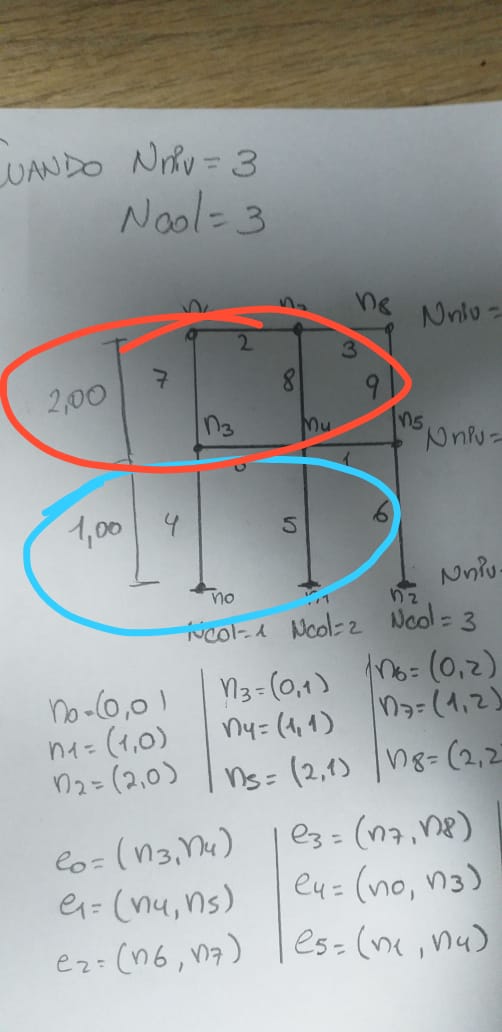 CUANDO Nniv = 3
Ncol = 3
n8 Nniv =
2 3
2,00 7 8 9
n3 n4 n5 Nniv =
1
1,00 4 5 6
n0 n1 n2 Nniv
Ncol=1 Ncol=2 Ncol=3
n0=(0,0)
n1=(1,0)
n2=(2,0)
n3=(0,1)
n4=(1,1)
n5=(2,1)
n6=(0,2)
n7=(1,2)
n8=(2,2
e0=(n3,n4)
e1=(n4,n5)
e2=(n6,n7)
e3=(n7,n8)
e4=(n0,n3)
e5=(n1,n4)